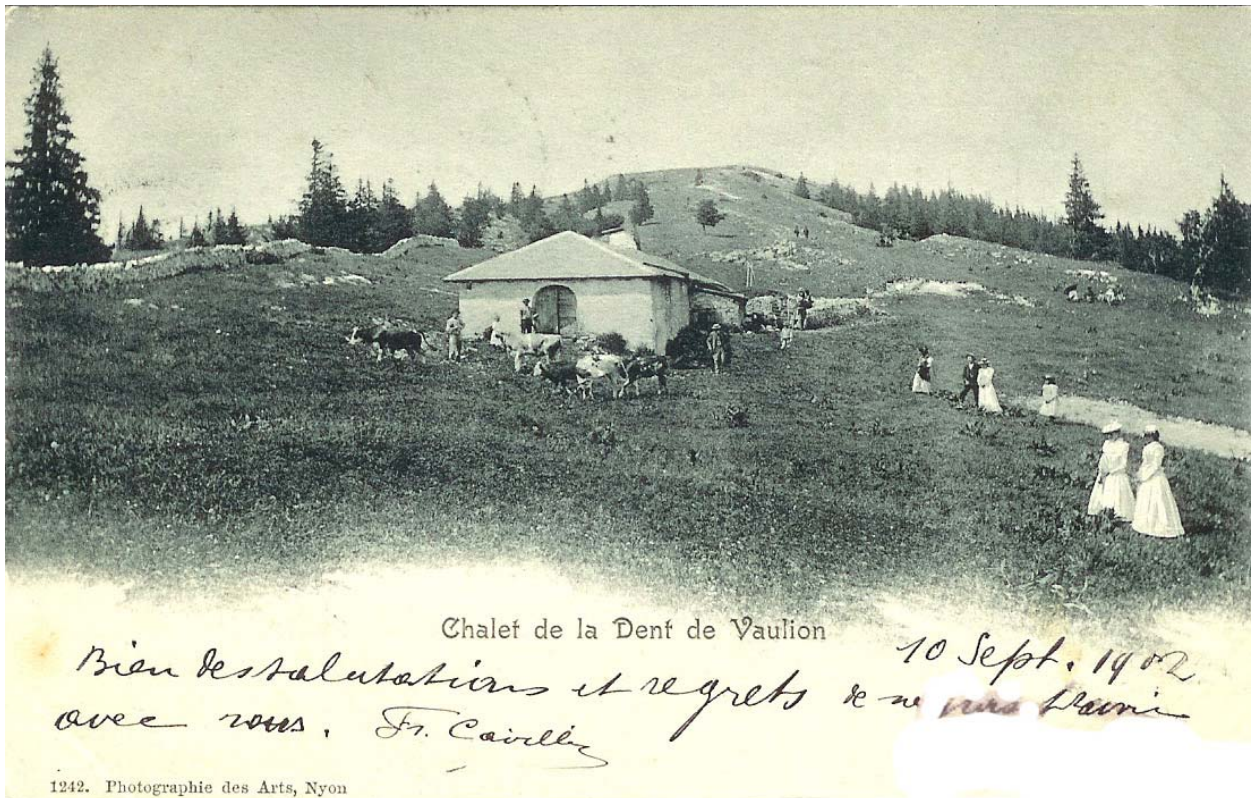 Chalet de la Dent de Vaulion
10 Sept. 1902
Bien des salutations et regrets de ne
avec vous. Fr.
1242. Photographie des Arts, Nyon